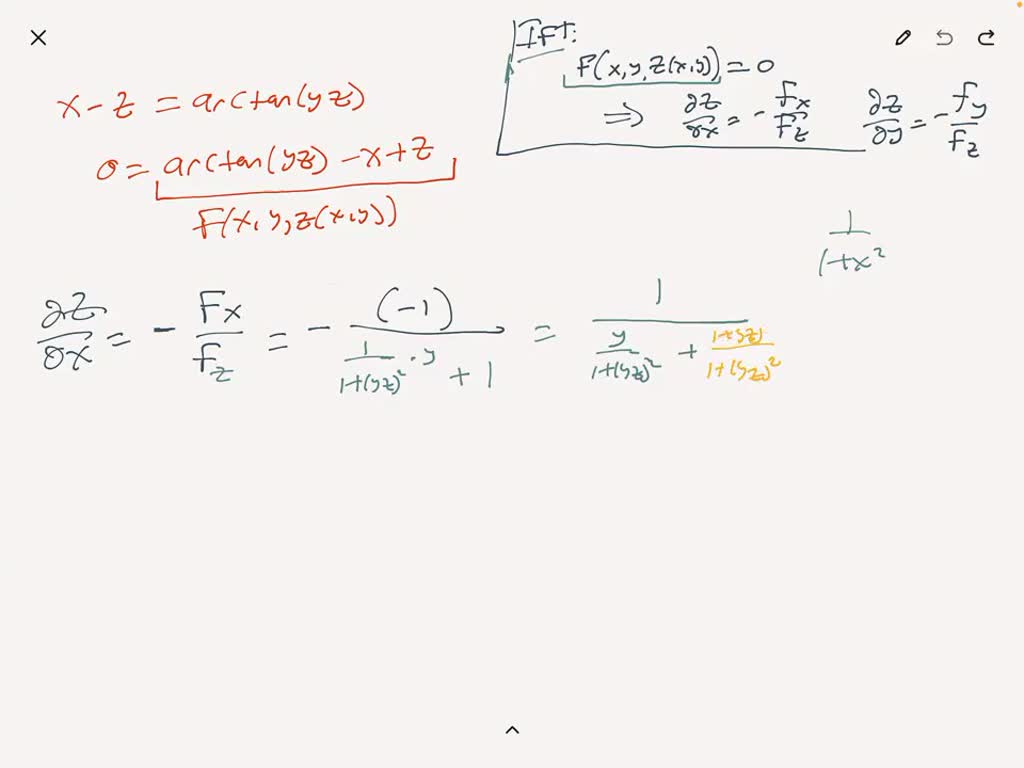 IFT:
F(x,y,z(x,y)) = 0
⇒ ∂z/∂x = - fx/Fz ∂z/∂y = - fy/Fz
x - z = arctan(yz)
0 = arctan(yz) - x + z
F(x,y,z(x,y))
1/(1+x²
∂z/∂x = - Fx/fz = - (-1)/(1/(1+(yz)²) · y + 1) = 1/(y/(1+(yz)²) + (1+yz)/(1+(yz)²))